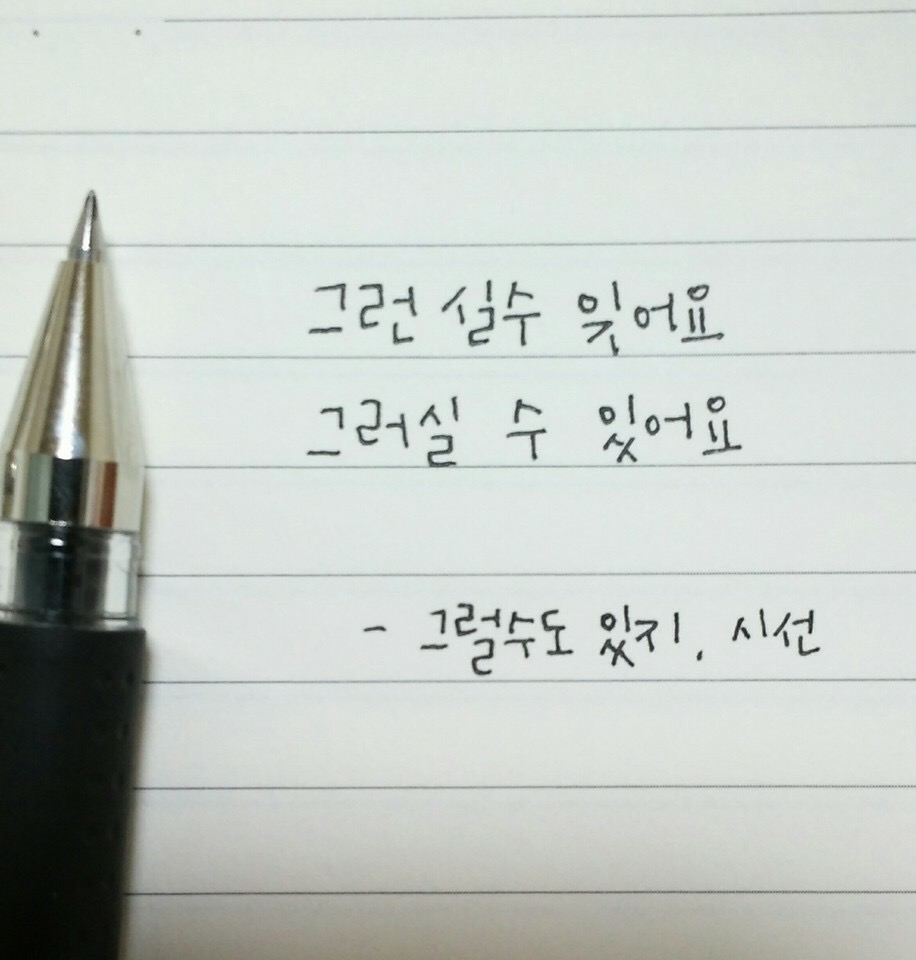 그런 실수 잊어요
그러실 수 있어요
- 그럴수도 있지, 시선